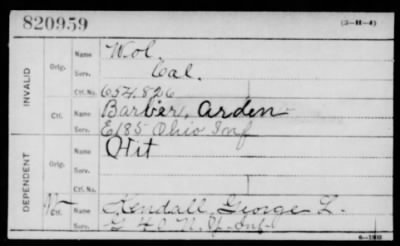 820959
(3-H-4)
INVALID
Orig. Name Wol.
Serv. Cal.
Ctf. No. 654.826
Ctf. Name Barber, Arden
Serv. E 185 Ohio Inf
DEPENDENT
Orig. Name
Serv.
Ctf. No.
Ctf. Name Kendall, George L.
Serv. Inf
6-1910